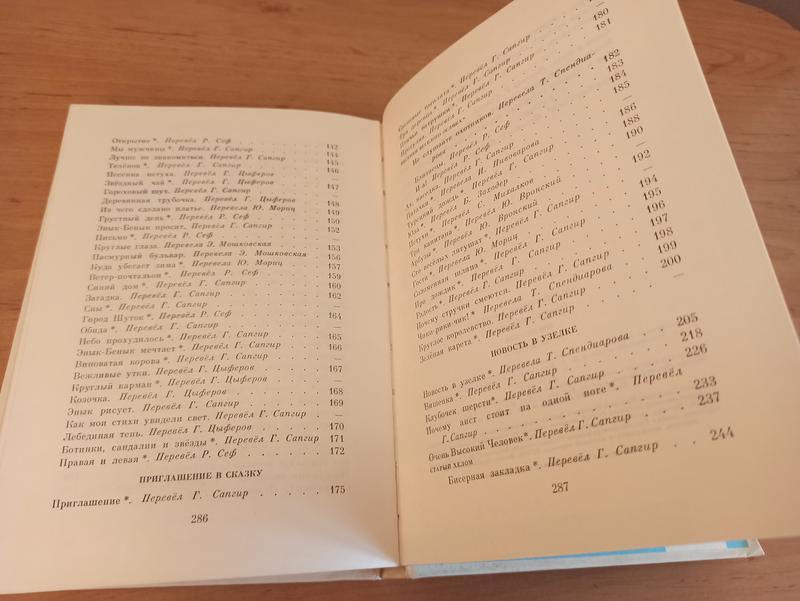 Открытие *. Перевёл Р. Сеф . . . . . . . 142
Мы мужчины *. Перевёл Г. Сапгир . . . . . 144
Лучше не знакомиться. Перевёл Г. Сапгир . . . 145
Телёнок *. Перевёл Г. Сапгир . . . . . . 146
Песенка петуха. Перевёл Г. Цыферов . . . . —
Звёздный чай *. Перевёл Г. Цыферов . . . . 147
Гороховый шут. Перевёл Г. Сапгир . . . . . —
Деревянная трубочка. Перевёл Г. Цыферов . . . 148
Из чего сделано платье. Перевела Ю. Мориц . . . 149
Грустный день *. Перевёл Р. Сеф . . . . . 150
Энык-Бенык просит. Перевёл Г. Сапгир . . . . 152
Письмо *. Перевёл Р. Сеф . . . . . . . —
Круглые глаза. Перевела Э. Мошковская . . . . 153
Пасмурный бульвар. Перевела Э. Мошковская . . . 156
Куда убегает зима *. Перевела Ю. Мориц . . . . 157
Ветер-почтальон *. Перевёл Р. Сеф . . . . . 159
Синий дом *. Перевёл Г. Сапгир . . . . . . 160
Загадка. Перевёл Г. Сапгир . . . . . . . 162
Сны *. Перевёл Г. Сапгир . . . . . . . —
Город Шуток *. Перевёл Р. Сеф . . . . . . 164
Обида *. Перевёл Г. Сапгир . . . . . . . —
Небо прохудилось *. Перевёл Г. Сапгир . . . . 165
Энык-Бенык мечтает *. Перевёл Г. Сапгир . . . 166
Виноватая корова *. Перевёл Г. Сапгир . . . . —
Вежливые утки. Перевёл Г. Цыферов . . . . . 167
Круглый карман *. Перевёл Г. Цыферов . . . . —
Козочка. Перевёл Г. Цыферов . . . . . . 168
Энык рисует. Перевёл Г. Сапгир . . . . . . 169
Как мои стихи увидели свет. Перевёл Г. Сапгир . . —
Лебединая тень. Перевёл Г. Цыферов . . . . . 170
Ботинки, сандалии и звёзды *. Перевёл Г. Сапгир . 171
Правая и левая *. Перевёл Р. Сеф . . . . . 172
ПРИГЛАШЕНИЕ В СКАЗКУ
Приглашение *. Перевёл Г. Сапгир . . . . . 175
286
Перевёл Г. Сапгир . . . . 180
Перевёл Г. Сапгир . . . . —
Перевёл Г. Сапгир . . . . 181
Перевёл Г. Сапгир
Не слушайте охотников. Перевела Т. Спендиа-
рова . . . . 182
Перевёл Р. Сеф . . . . 183
Перевёл Г. Сапгир . . . . 184
Перевёл И. Пивоварова . . . . 185
Перевёл Б. Заходер . . . . —
Перевёл С. Михалков . . . . 186
Петух *. Перевёл Ю. Вронский . . . . 188
Три капитана *. Перевёл Г. Сапгир . . . . 190
Арбузы *. Перевёл Ю. Вронский . . . . —
Сто весёлых лягушат *. Перевёл Г. Сапгир . . . . 192
Гости *. Перевела Ю. Мориц . . . . —
Соломенная шляпа *. Перевёл Г. Сапгир . . . . 194
Про дождик *. Перевёл Г. Сапгир . . . . 195
Радость *. Перевёл Г. Сапгир . . . . 196
Почему стручки смеются. Перевёл Г. Сапгир . . . . 197
Чики-рики-чик! *. Перевела Т. Спендиарова . . . . 198
Круглое королевство. Перевёл Г. Сапгир . . . . 199
Зелёная карета *. Перевёл Г. Сапгир . . . . 200
НОВОСТЬ В УЗЕЛКЕ
Новость в узелке *. Перевела Т. Спендиарова . . 205
Вишенка *. Перевёл Г. Сапгир . . . . . . 218
Клубочек шерсти *. Перевёл Г. Сапгир . . . . 226
Почему аист стоит на одной ноге *. Перевёл
Г. Сапгир . . . . . . . . . . 233
Очень Высокий Человек *. Перевёл Г. Сапгир . . . 237
СТАРЫЙ ХЕЛОМ
Бисерная закладка *. Перевёл Г. Сапгир . . . 244
287